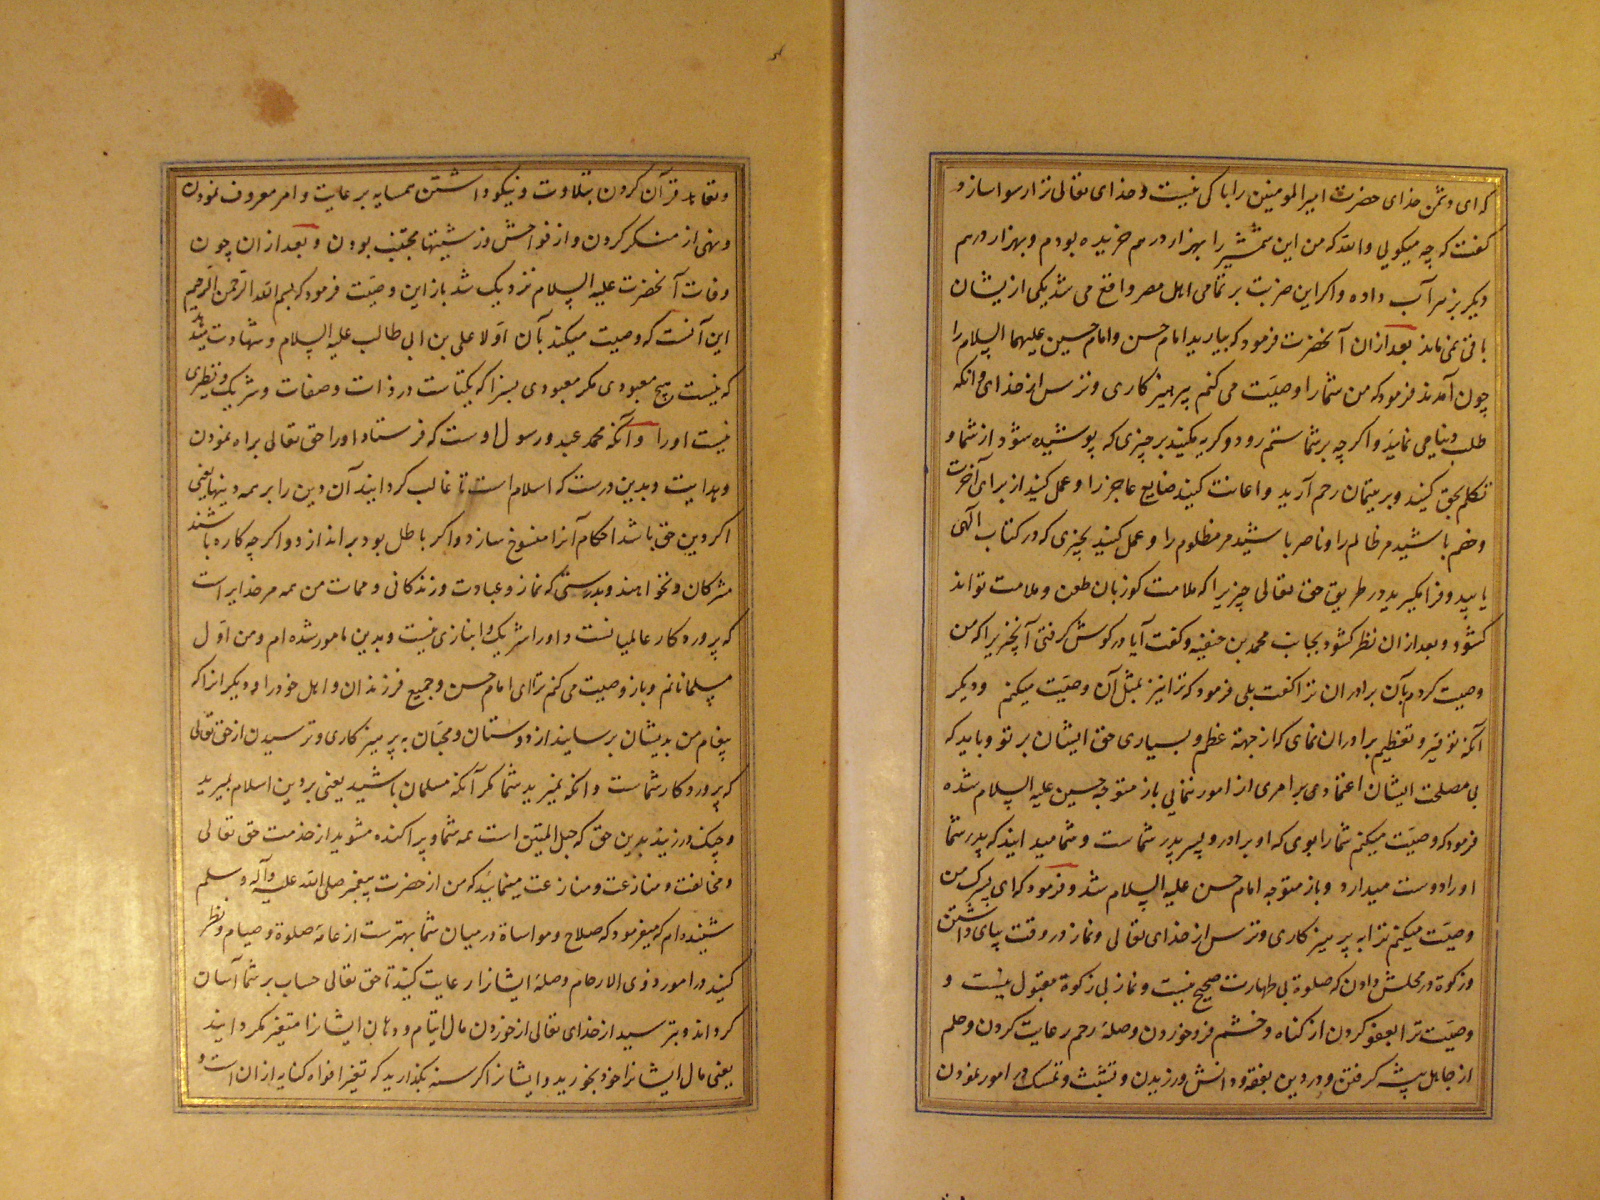 که ای دشمن خدای حضرت امیر المومنین را باکی نیست و خدای تعالی ترا رسوا سازد
گفت که چه میکویی والله که من این شمشیر را بهزار درهم خریده بودم و بهزار درهم
دیکر بزهر آب داده و اکر این ضربت بر تمامی اهل مصر واقع می شد یکی از یشان
باقی نمی ماند بعد ازان آنحضرت فرمود که بیارید امام حسن و امام حسین علیهما السلام را
چون آمدند فرمود که من شما را وصیّت می کنم بپرهیز کاری و ترس از خدای و آنکه
طلب دنیا می نمایید و اکر چه بر شما ستم رود و کریه مکنید بر چیزی که پوشیده شود از شما و
تکلم بحق کنید و بر یتیمان رحم آرید و اعانت کنید ضایع عاجز را و عمل کنید از برای آخرت
و خصم باشید مر ظالم را و ناصر باشید مر مظلوم را و عمل کنید بچیزی که در کتاب الهی
یابید و فرا مکیرید در طریق حق تعالی چیزیرا که ملامت کو زبان طعن و ملامت تواند
کشود و بعد ازان نظر کشود بجانب محمد بن حنفیه و کفت آیا در کوش کرفتی آنچیزیرا که من
وصیت کردم بآن برادران ترا کفت بلی فرمود که ترا نیز بمثل آن وصیّت میکنم و دیکر
آنکه توقیر و تعظیم برادران نمای که از جهة عظم و بسیاری حق ایشان بر تو و باید که
بی مصلحت ایشان اعتمادی بر امری از امور ننمائی باز متوجه حسین علیه السلام شده
فرمود که وصیّت میکنم شما را بوی که او برادر و پسر پدر شماست و شما میدانیدکه پدر شما
او را دوست میدارد و باز متوجه امام حسن علیه السلام شد و فرمود که ای پسرک من
وصیّت میکنم ترا به پرهیز کاری و ترس از خدای تعالی و نماز در وقت بپای داشتن
و زکوة در محلش دادن که صلوة بی طهارت صحیح نیست و نماز بی زکوة مقبول نیست و
وصیّت ترا بعفو کردن از کناه و خشم فرو خوردن و صلهٔ رحم رعایت کردن و حلم
از جاهل پیشه کرفتن و در دین بفقه و دانش ورزیدن و تثبّت و تمسک در امور نمودن
و تعاهد قرآن کردن بتلاوت و نیکو داشتن همسایه برعایت و امر معروف نمودن
و نهی از منکر کردن و از فواحش و زشتیها مجتنب بودن و بعد ازان چون
وفات آنحضرت علیه السلام نزدیک شد باز این وصیّت فرمود که بسم الله الرحمن الرحیم
این آنست که وصیت میکند بآن اوّلا علی بن ابی طالب علیه السلام و شهادت میدهد
که نیست هیچ معبودی مکر معبودی بسزا که یکتاست در ذات و صفات و شریک و نظیری
نیست او را و آنکه محمد عبد و رسول اوست که فرستاد او را حق تعالی براه نمودن
و هدایت و بدین درست که اسلام است تا غالب کردانید آن دین را بر همه دینها یعنی
اکر دین حق باشد احکام آنرا منسوخ سازد و اکر باطل بود براندازد و اکر چه کاره باشند
مشرکان و نخواهند و بدرستی که نماز و عبادت و زندکانی و ممات من همه مر خدایراست
که پروردکار عالمیانست و او را شریک و انبازی نیست و بدین مامور شده ام و من اوّل
مسلمانانم و باز وصیت می کنم ترا ای امام حسن و جمیع فرزندان و اهل خود را و دیکر انرا که
پیغام من بدیشان برسانید از دوستان و محبّان به پرهیز کاری و ترسیدن از حق تعالی
که پروردکار شماست و آنکه نمیرید شما مکر آنکه مسلمان باشید یعنی بر دین اسلام بمیرید
و چنک در زنید بدین حق که حبل المتین است همه شما و پراکنده مشوید از خدمت حق تعالی
و مخالفت و منازعت و منازعت مینمائید که من از حضرت پیغمبر صلی الله علیه و آله وسلم
شنیده ام که میفرمود که صلاح و مواساة در میان شما بهترست از عامهٔ صلوة و صیام و نظر
کنید در امور ذوی الارحام و صلهٔ ایشانرا رعایت کنید تا حق تعالی حساب بر شما آسان
کرداند و بترسید از خدای تعالی از خوردن مال ایتام و دهان ایشانرا متغیّر مکردانید
یعنی مال ایشانرا خود مخورید و ایشانرا کرسنه مکذارید که تغیّر افواه کنایه از ان است و